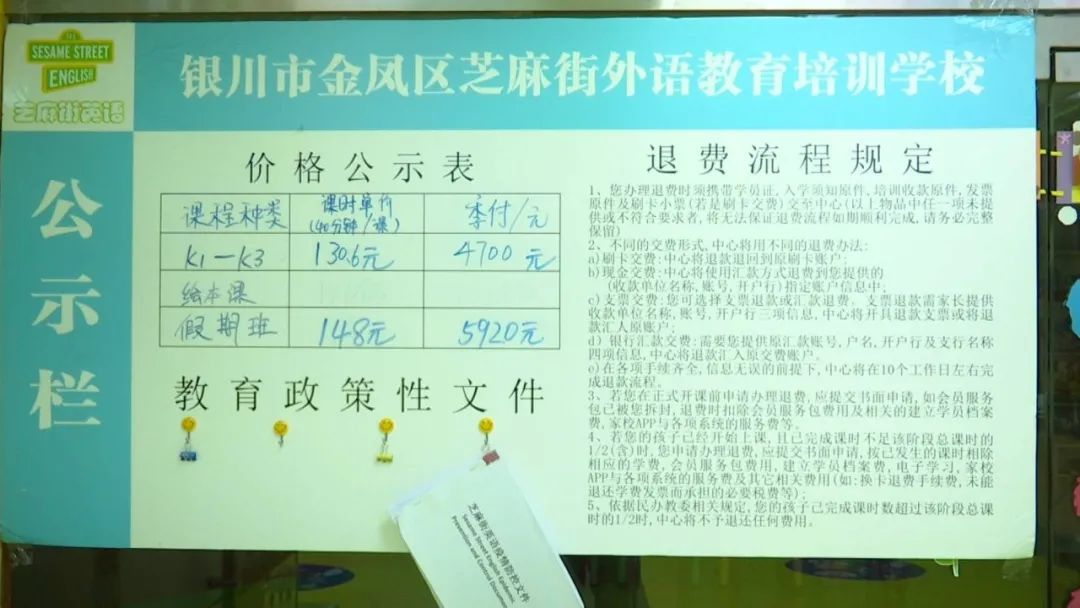 SESAME STREET
ENGLISH
芝麻街英语
银川市金凤区芝麻街外语教育培训学校
公示栏
价格公示表
课程种类 课时单价(40分钟/课) 季付/元
K1—K3 130.6元 4700元
绘本课
假期班 148元 5920元
教育政策性文件
芝麻街英语疫情防控文件
Sesame Street English Epidemic
Prevention and Control Document
退费流程规定
1、您办理退费时须携带学员证,入学须知原件,培训收款原件,发票
原件及刷卡小票(若是刷卡交费)交至中心(以上物品中任一项未提
供或不符合要求者,将无法保证退费流程如期顺利完成,请务必完整
保留)
2、不同的交费形式,中心将用不同的退费办法:
a)刷卡交费:中心将退款退回到原刷卡账户;
b)现金交费:中心将使用汇款方式退费到您提供的
(收款单位名称,账号,开户行)指定账户信息中;
c)支票交费:您可选择支票退款或汇款退费。支票退款需家长提供
收款单位名称,账号,开户行三项信息,中心将开具退款支票或将退
款汇入原账户;
d)银行汇款交费:需要您提供原汇款账号,户名,开户行及支行名称
四项信息,中心将退款汇入原交费账户。
e)在各项手续齐全,信息无误的前提下,中心将在10个工作日左右完
成退款流程。
3、若您在正式开课前申请办理退费,应提交书面申请,如会员服务
包已被您拆封,退费时扣除会员服务包费用及相关的建立学员档案
费,家校APP与各项系统的服务费等。
4、若您的孩子已经开始上课,且已完成课时不足该阶段总课时的
1/2(含)时,您申请办理退费,应提交书面申请,按已发生的课时相除
相应的学费,会员服务包费用,建立学员档案费,电子学习,家校
APP与各项系统的服务费及其它相关费用(如:换卡退费手续费,未能
退还学费发票而承担的必要税费等);
5、依据民办教委相关规定,您的孩子已完成课时数超过该阶段总课
时的1/2时,中心将不予退还任何费用。